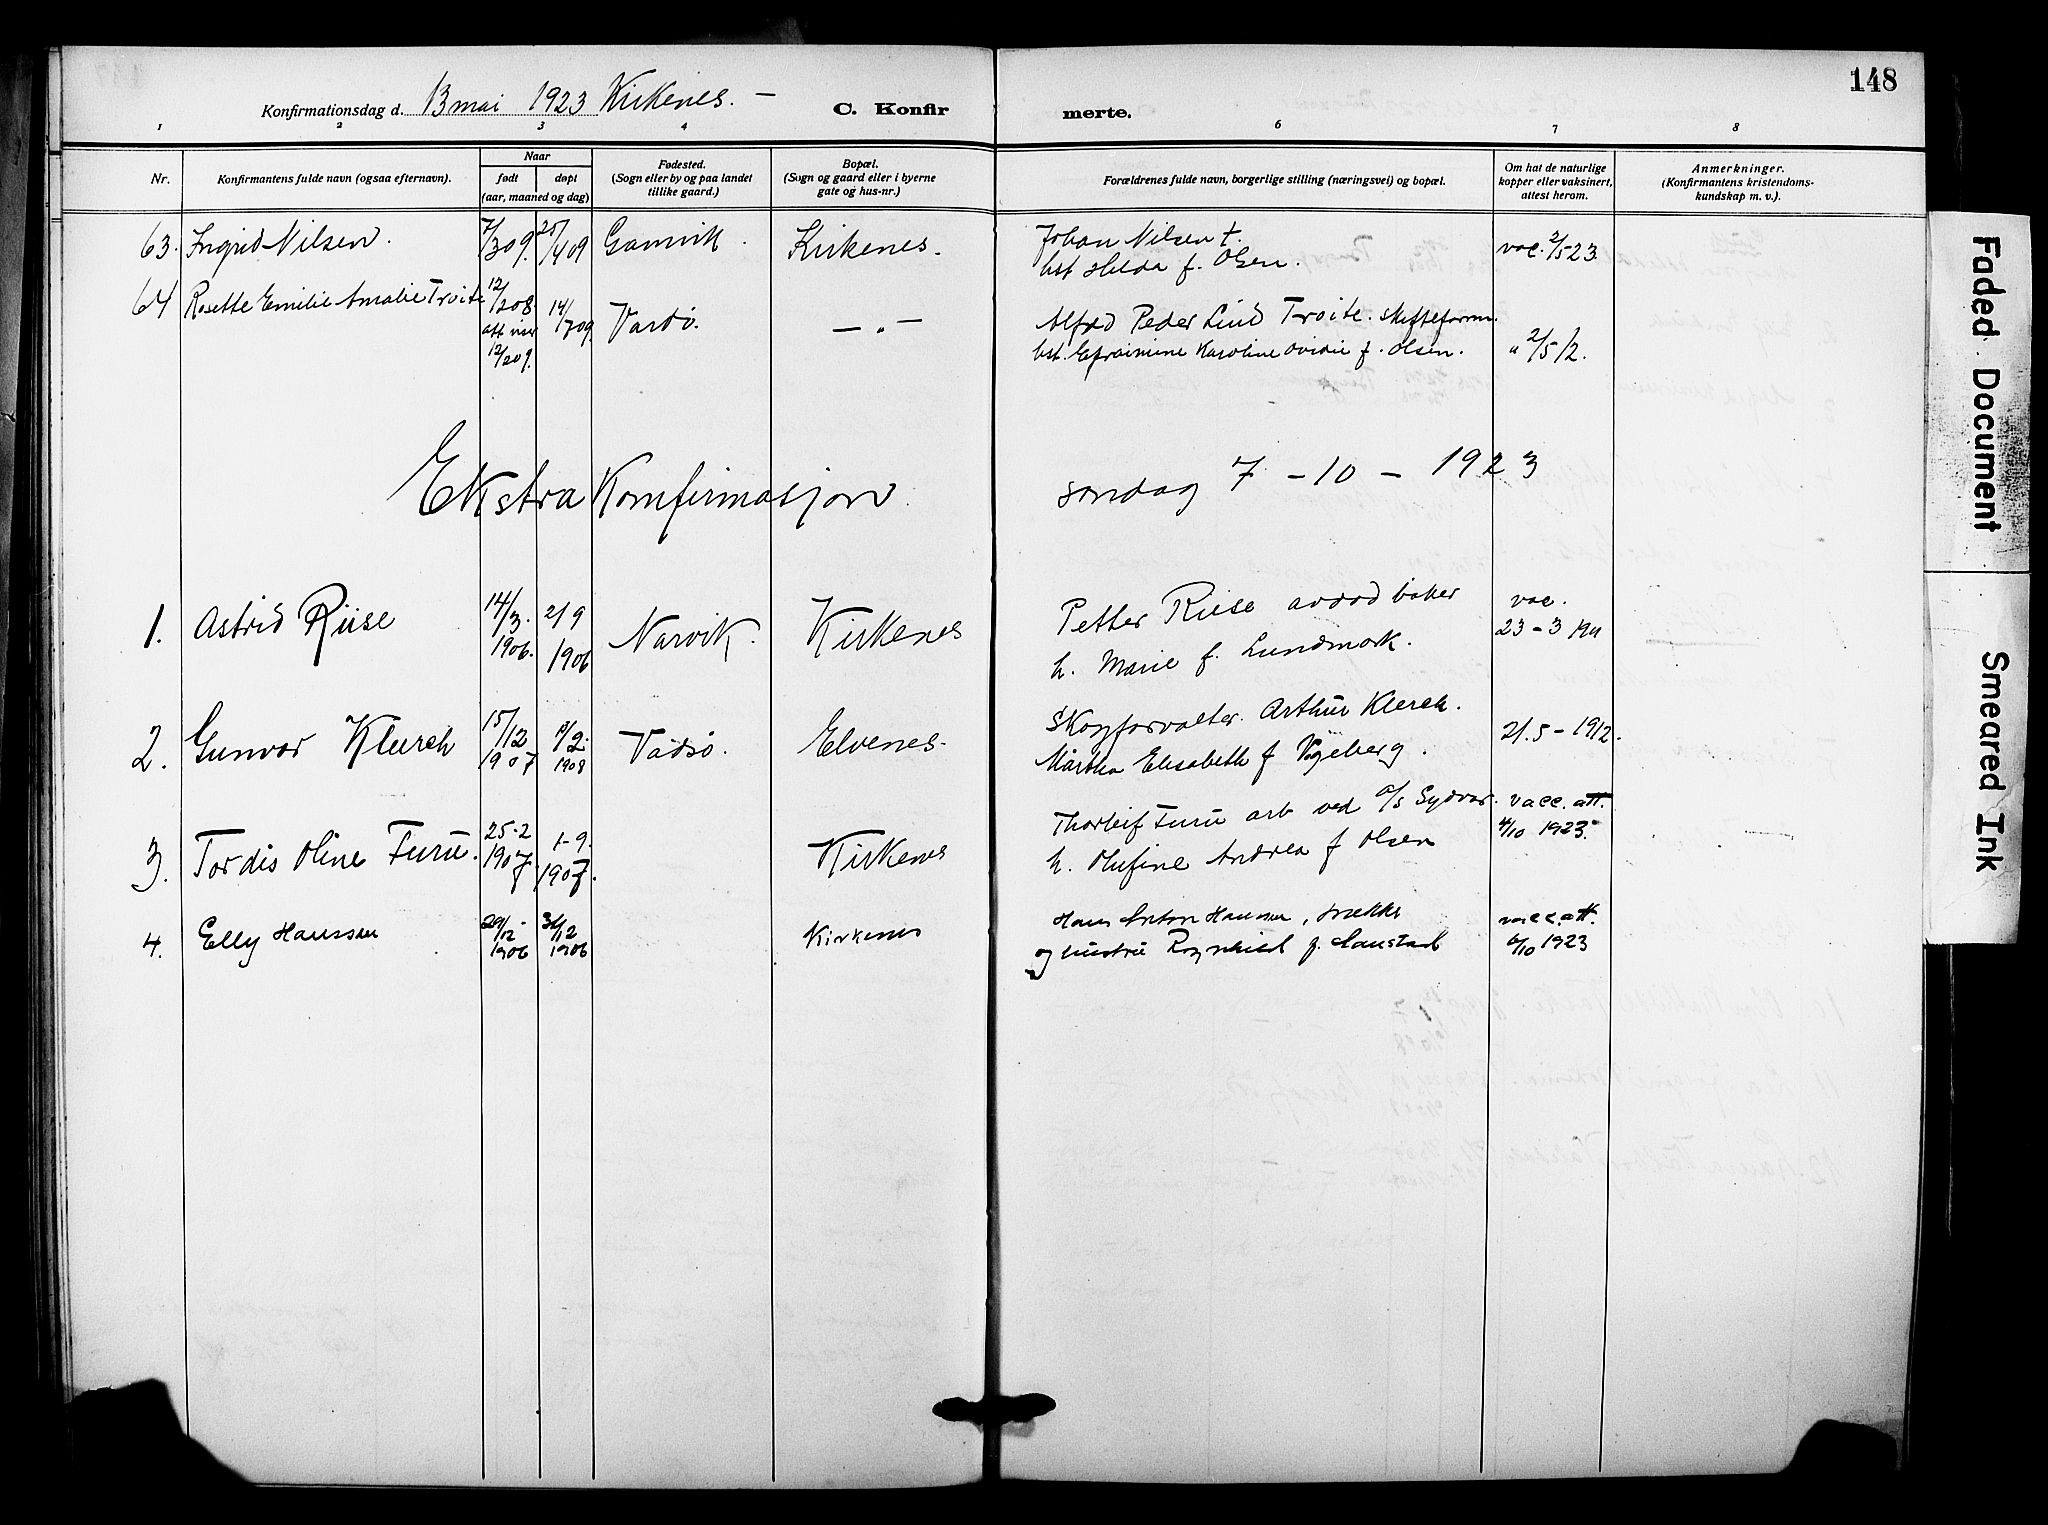 148
Konfirmationsdag d. 13 mai 1923 Kirkenes. –
C. Konfirmerte.
1 2 3 4 6 7 8
Nr.
Konfirmantens fulde navn (ogsaa efternavn).
Naar
født
døpt
(aar, maaned og dag)
Fødested.
(Sogn eller by og paa landet
tillike gaard.)
Bopæl.
(Sogn og gaard eller i byerne
gate og hus-nr.)
Forældrenes fulde navn, borgerlige stilling (næringsvei) og bopæl.
Om hat de naturlige
kopper eller vaksinert,
attest herom.
Anmerkninger.
(Konfirmantens kristendoms-
kundskap m. v.).
63. Ingrid Nilsen. 7/3 09. 25/4 09 Gamvik. Kirkenes. Johan Nilsen †. vac. 2/5 23
hst Hilda f. Olsen.
64 Rosette Emilie Amalie Troite 12/2 08. 14/7 09. Vardø. – " – Alfred Peder Lind Troite. skifteform.
12/2 09. hst. Efraimine Karoline Ovidie f. Olsen. " 2/5 12.
Ekstra Konfirmasjon søndag 7 – 10 – 1923
1. Astrid Riise 14/3. 1906. 2/9 1906 Narvik. Kirkenes Petter Riise avdød baker vac.
h. Marie f. Lundmark. 23 – 3 1911
2. Gunvor Klerck 15/12 1907 1908 Vadsø. Elvenes. Skogforvalter. Arthur Klerck. 21. 5 – 1912.
Martha Elisabeth f
3. Tordis Oline Furu. 25-2 1907 1-9. 1907. Kirkenes Thorleif Furu arb ved a/s Sydvar. vacc. att.
h. Olufine Andrea f Olsen 4/10 1923.
4. Elly Hanssen 29/12 1906 31/12 1906 Kirkenes Hans Anton Hanssen, vacc. att.
og hustru Ragnhild f. 6/10 1923
Faded Document
Smeared Ink